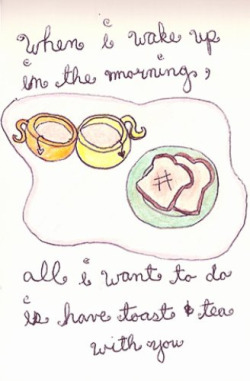 when i wake up
in the morning,
all i want to do
is have toast & tea
with you